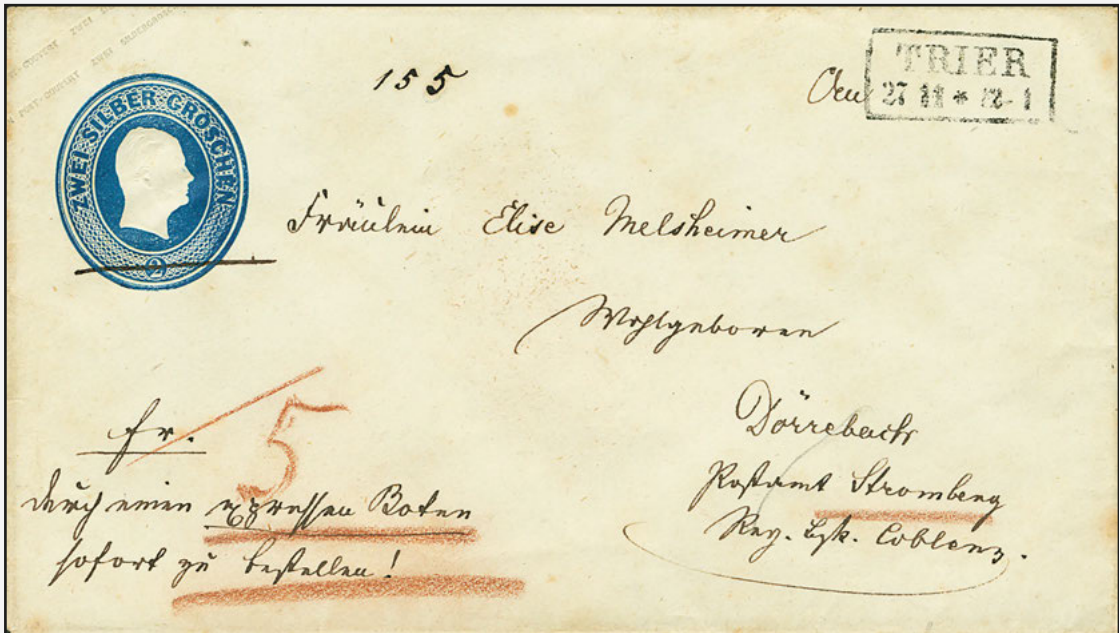 POST-COUVERT ZWEI SILBERGROSCHEN
ZWEI SILBER GROSCHEN
2
155
TRIER
27 11 * 12-1
Fräulein Elise Melsheimer
Wohlgeboren
Dörrebach
Postamt Stromberg
Reg. Bzk. Coblenz.
fr.
5
durch einen expressen Boten
sofort zu bestellen!